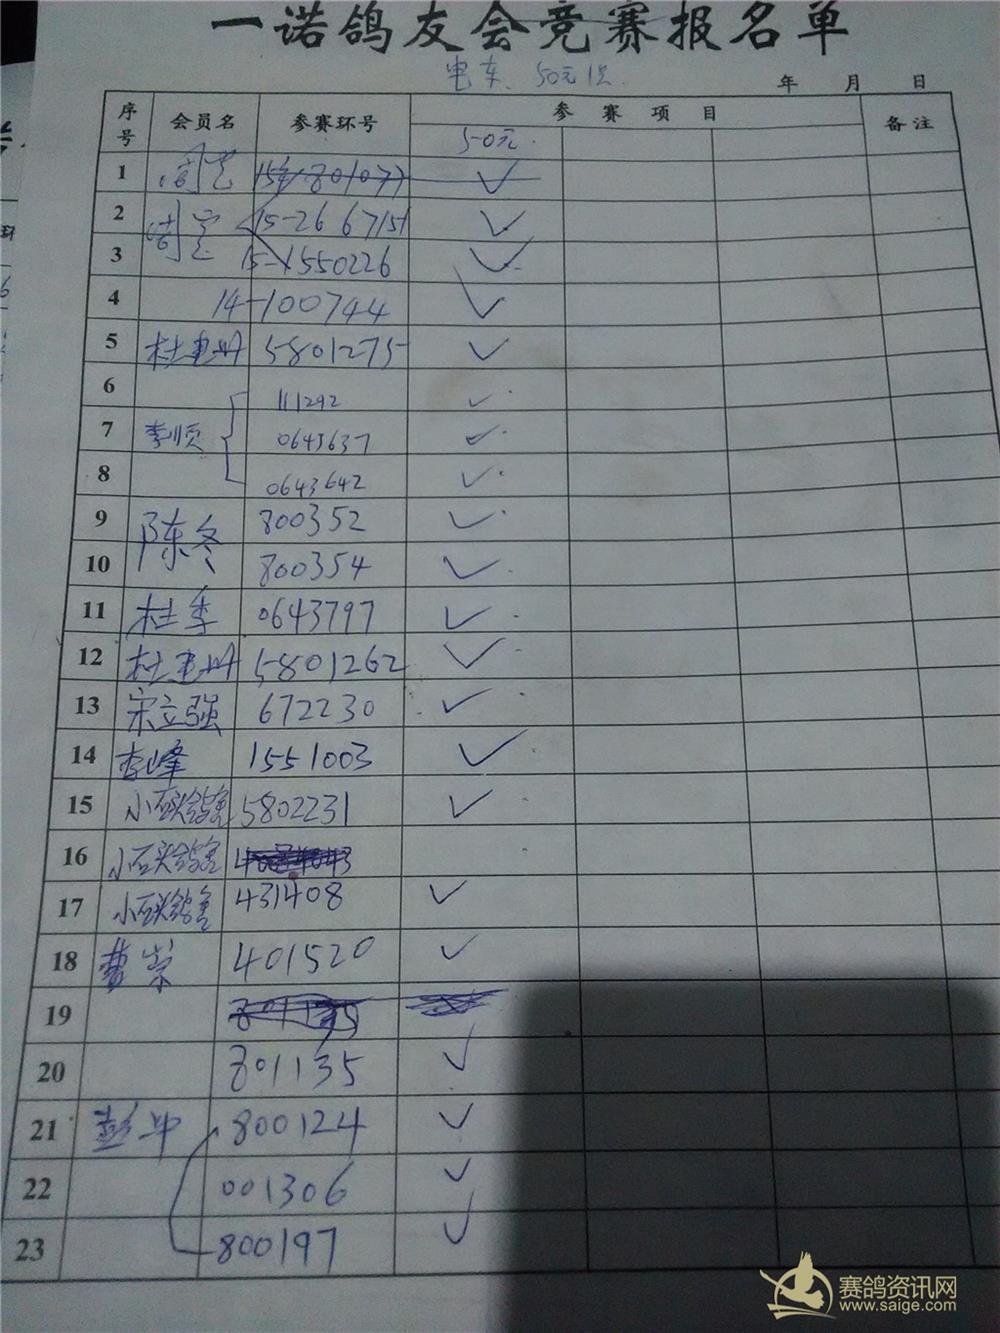 一诺鸽友会竞赛报名单
电车、50元1只
年 月 日
序号 会员名 参赛环号 参赛项目 备注
50元
1 801077 ✓
2 15-266715 ✓
3 15-1550226 ✓
4 14-100744 ✓
5 5801275 ✓
6 111292 ✓
7 李顺 0643637 ✓
8 0643642 ✓
9 陈冬 800352 ✓
10 800354 ✓
11 杜季 0643797 ✓
12 5801262 ✓
13 宋立强 672230 ✓
14 李峰 1551003 ✓
15 小石头鸽舍 5802231 ✓
16 小石头鸽舍
17 小石头鸽舍 431408 ✓
18 曹荣 401520 ✓
19
20 801135 ✓
21 800124 ✓
22 001306 ✓
23 800197 ✓
赛鸽资讯网
www.saige.com